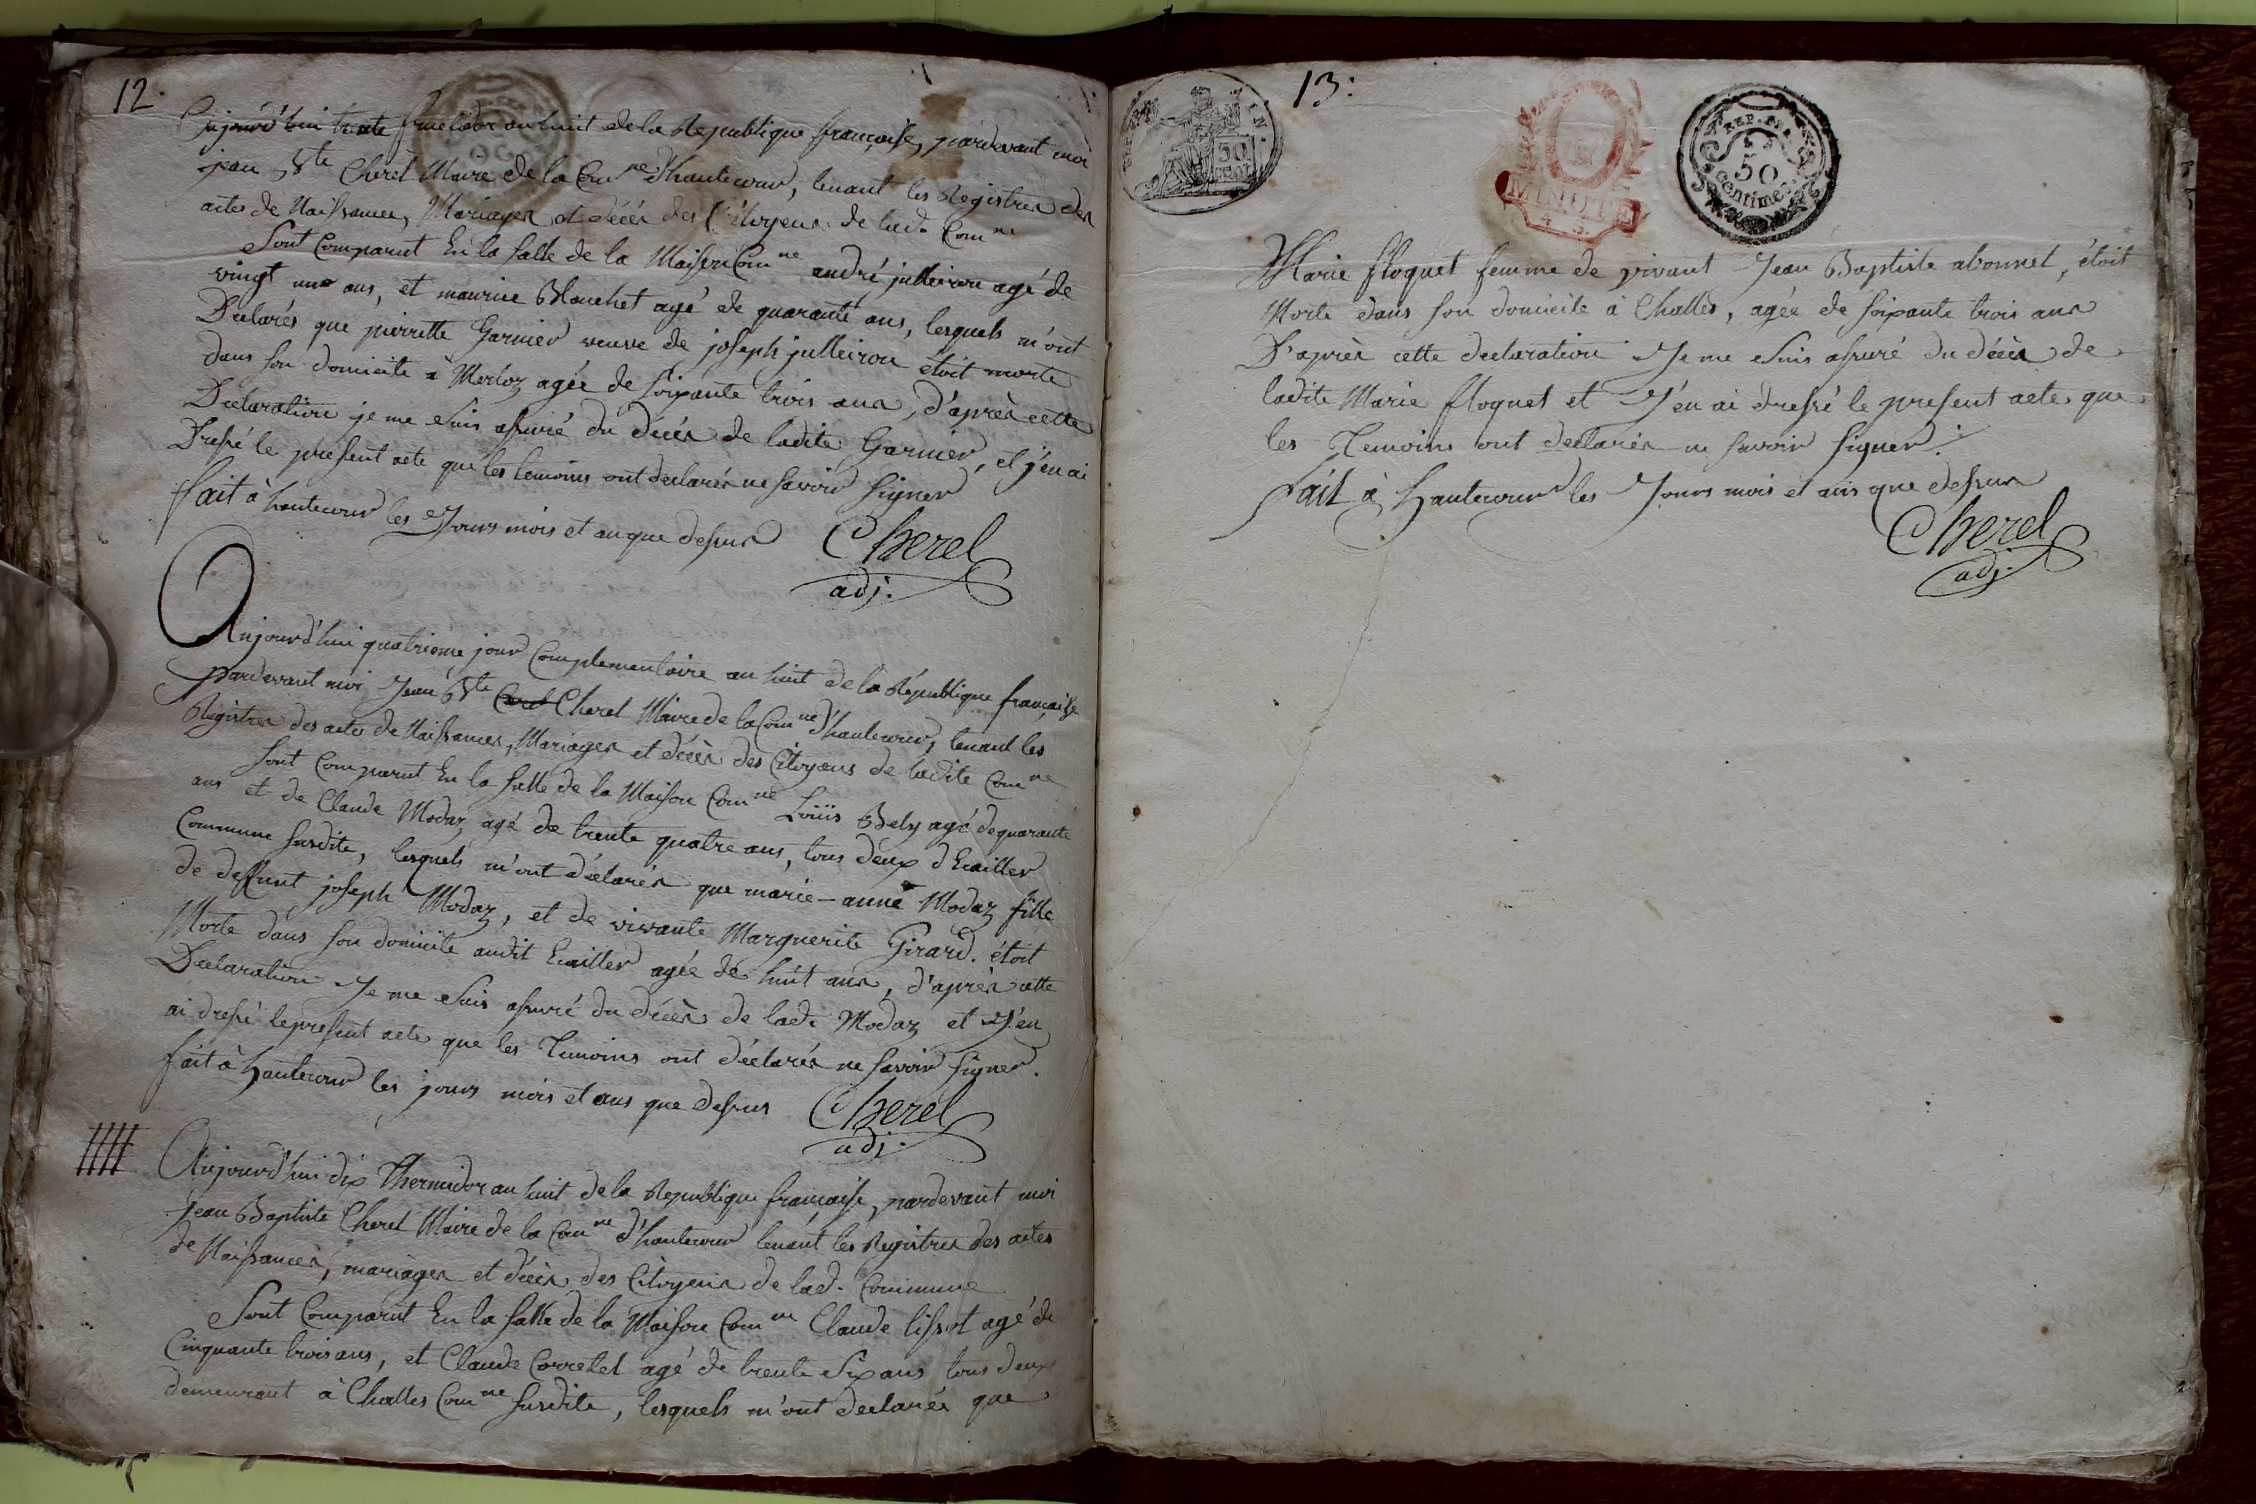 12.
Aujourd'hui trente fructidor an huit de la Republique française, pardevant moi
jean Bte Cherel Maire de la Comne d'hautecour, tenant les Registres des
actes de Naissances, Mariages et décès des Citoyens de lad. Comne
Sont Comparut En la salle de la Maison Comne andré julleiron agé de
vingt un ans, et maurice Blanchet agé de quarante ans, lesquels m'ont
Déclarés que pierrette Garnier veuve de joseph julleiron étoit morte
dans son domicile à Merloz agée de soixante trois ans, d'après cette
Declaration je me suis assuré du décès de ladite Garnier, et j'en ai
Dressé le present acte que les temoins ont declarés ne savoir signer
fait à hautecour les Jours mois et an que dessus
Cherel
adj.
Aujourd'hui quatrieme jour Complementaire an huit de la République française
pardevant moi Jean Bte Cherel Maire de la Comne d'hautecour, tenant les
Registres des actes de Naissances, Mariages et décès des Citoyens de ladite Comne
Sont Comparut En la salle de la Maison Comne Loüis Bely agé de quarante
ans et de Claude Modaz agé de trente quatre ans, tous deux d'Evailler
Commune susdite, lesquels m'ont déclarés que marie-anne Modaz fille
de deffunt joseph Modaz, et de vivante Marguerite Girard. étoit
Morte dans son domicile audit Evailler agée de huit ans, d'après cette
Declaration Je me suis assuré du décès de lad. Modaz et J'en
ai dressé le present acte que les Temoins ont déclarés ne savoir signer.
fait à hautecour les jours mois et ans que dessus
Cherel
adj.
Aujourd'hui dix Thermidor an huit de la Republique française, pardevant moi
Jean Baptiste Cherel Maire de la Comne d'hautecour tenant les Registres des actes
de Naissances, mariages et décès des Citoyens de lad. Commune
Sont Comparut En la salle de la Maison Comne Claude lissot agé de
Cinquante trois ans, et Claude Corretel agé de trente Six ans tous deux
demeurant à Challes Comne susdite, lesquels m'ont declarés que
13.
50
REP. FRA
50
centimes
MINUTE
Marie floquet femme de vivant Jean Baptiste abonnel, étoit
Morte dans son domicile à Challes, agée de soixante trois ans
D'après cette declaration Je me suis assuré du décès de
ladite Marie floquet et J'en ai dressé le present acte que
les Temoins ont declarés ne savoir signer
fait à hautecour les Jours mois et ans que dessus
Cherel
adj.